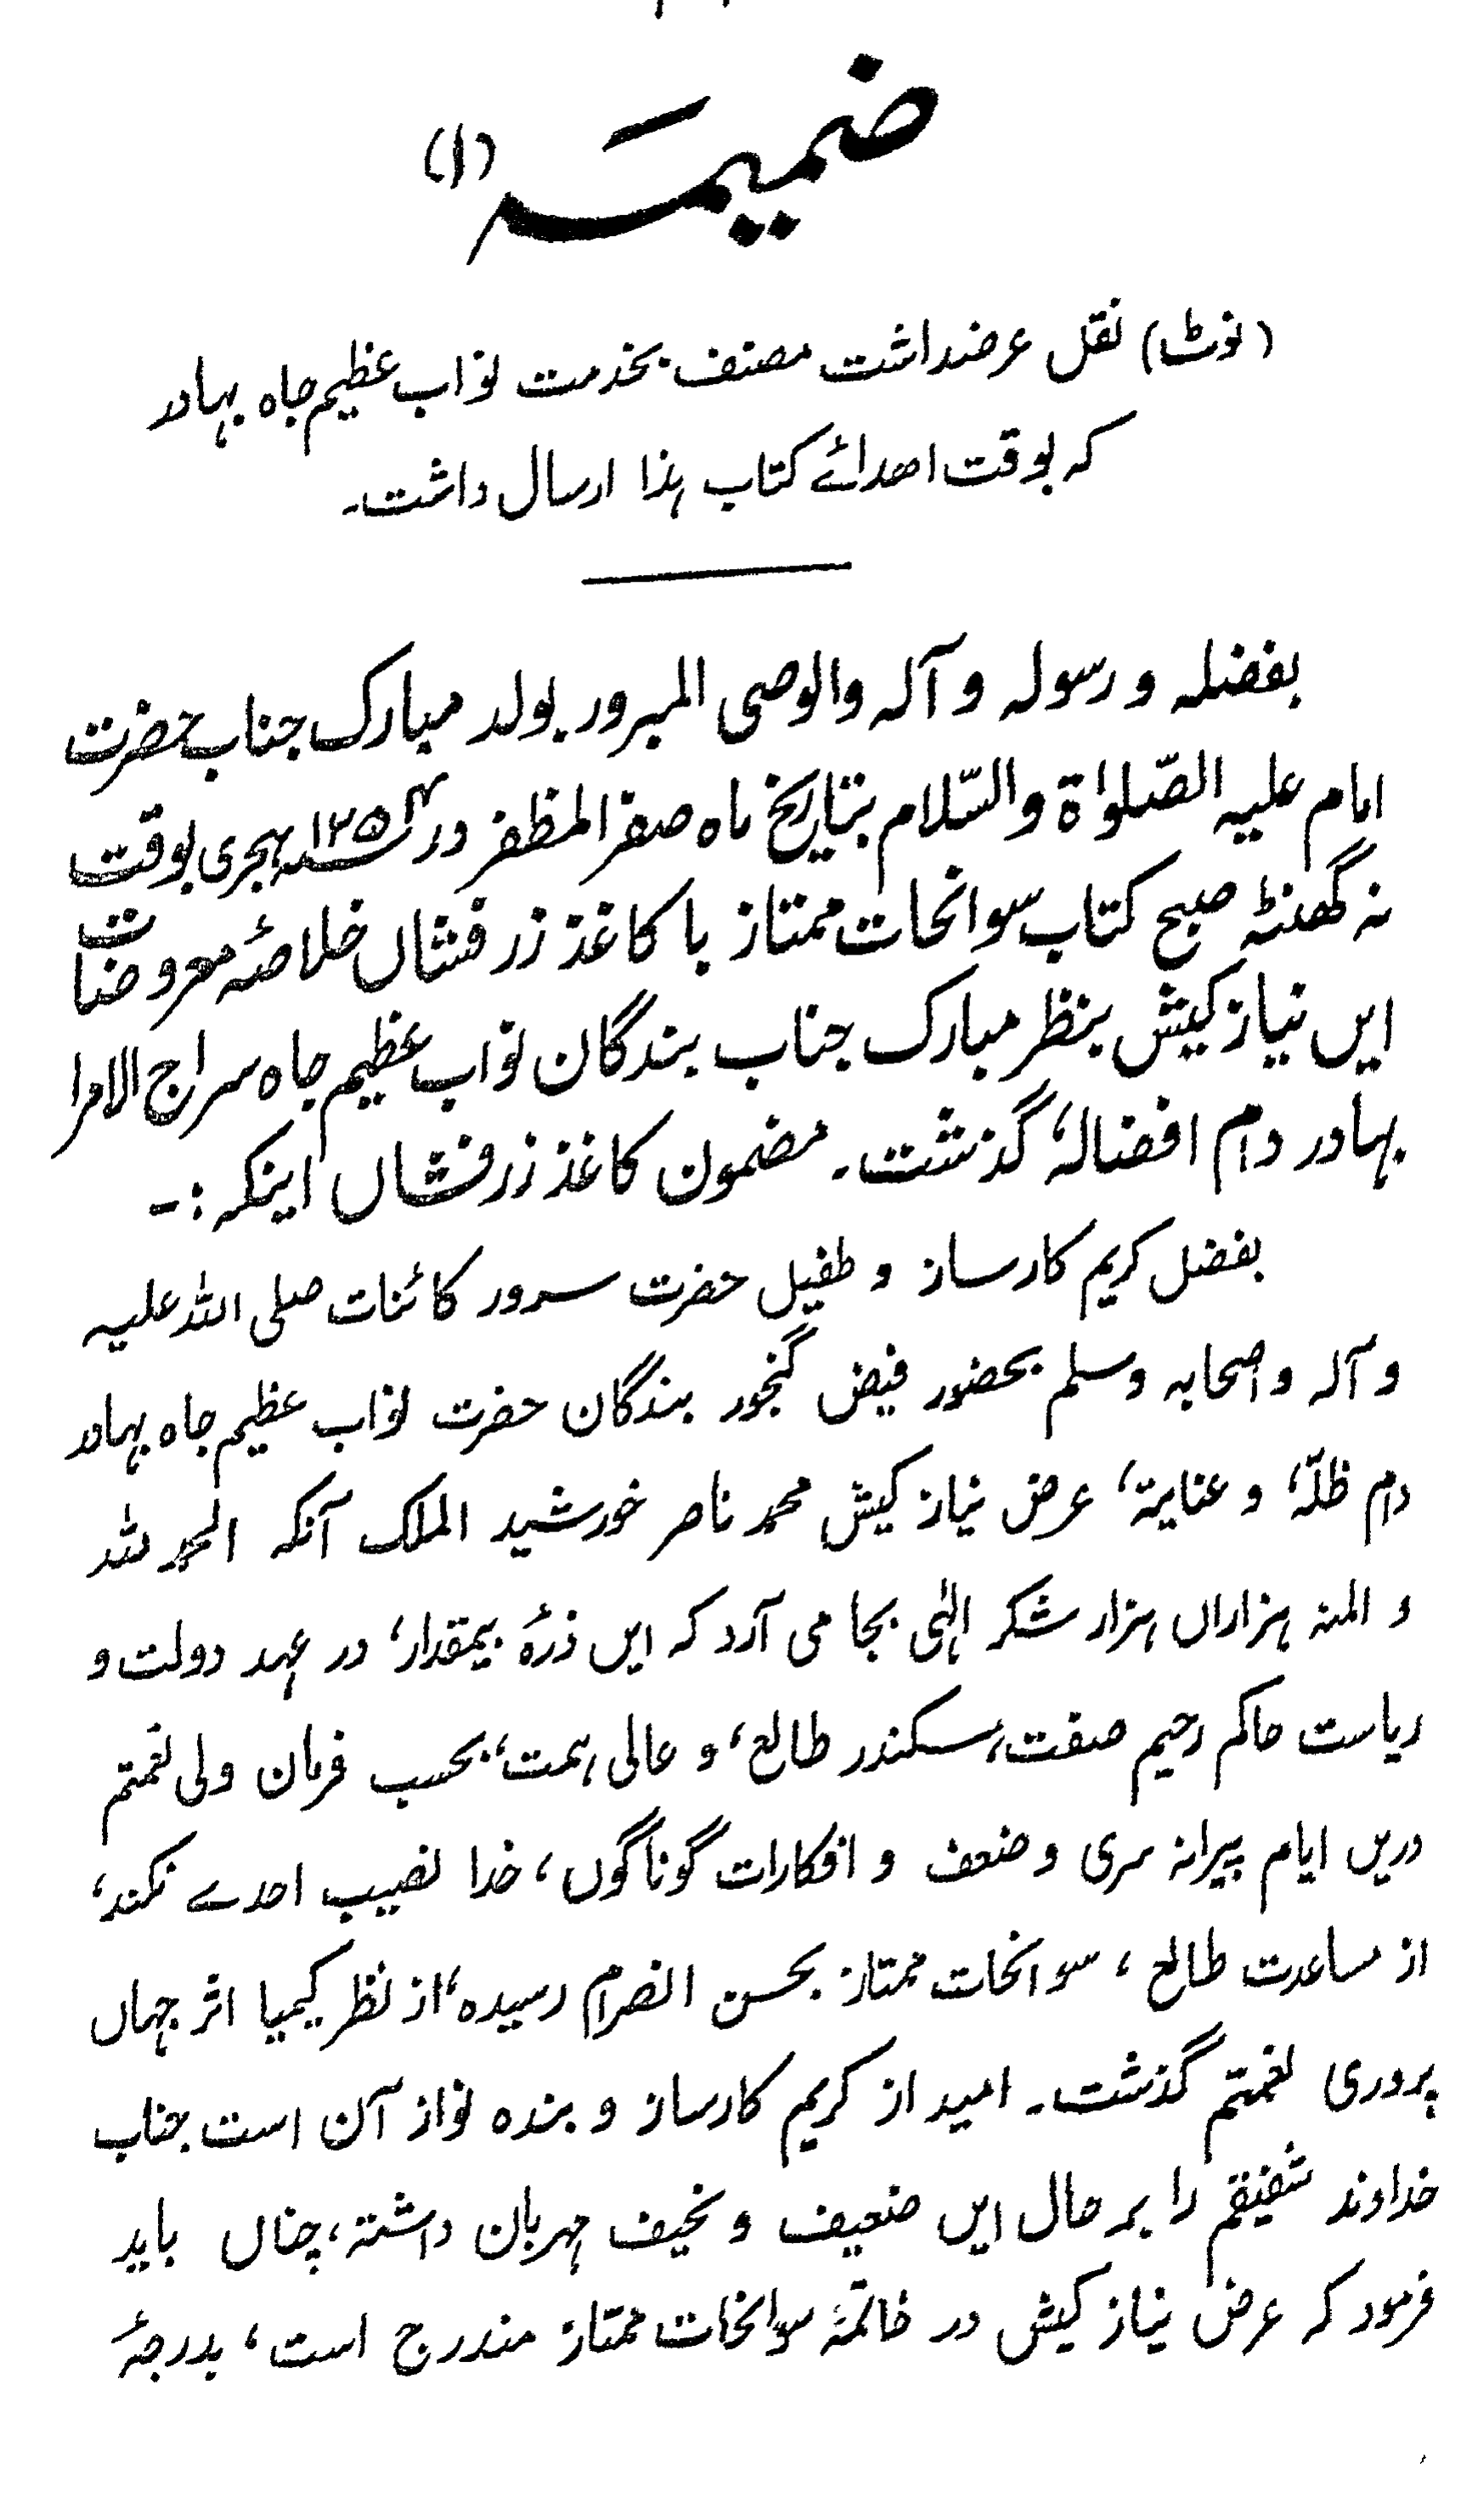 ضمیمہ (۱)
(نوٹ) نقل عرضداشت مصنف بخدمت نواب عظیم جاہ بہادر
کہ بوقت اھدائے کتاب ہذا ارسال داشت۔
بفضلہ و رسولہ و آلہ والوصی المبرور بولد مبارک جناب حضرت
امام علیہ الصّلواۃ والسّلام بتاریخ ماہ صفر المظفر در ہجری بوقت
نہ گھنٹہ صبح کتاب سوانحات ممتاز با کاغذ زر فشاں خلاصۂ معروضات
ایں نیاز کیش بنظر مبارک جناب بندگان نواب عظیم جاہ سراج الامرا
بہادر دام افضالہ، گذشت۔ مضمون کاغذ زرفشاں اینکہ :۔
بفضل کریم کارساز و طفیل حضرت سرور کائنات صلی اللہ علیہ
و آلہ و اصحابہ وسلم بحضور فیض گنجور بندگان حضرت نواب عظیم جاہ بہادر
دام ظلّہ، و عنایتہ، عرض نیاز کیش محمد ناصر خورشید الملک آنکہ الحمد للہ
و المنہ ہزاراں ہزار شکر الہٰی بجا می آرد کہ ایں ذرۂ بیمقدار، در عہد دولت و
ریاست حاکم رحیم صفت، سکندر طالع، و عالی ہمت، بحسب فرمان ولی نعمتم
دریں ایام پیرانہ سری و ضعف و افکارات گوناگوں، خدا نصیب احدے نکند،
از مساعدت طالع، سوانحات ممتاز بحسن انصرام رسیدہ، از نظر کیمیا اثر جہاں
پروری نعمتم گذشت۔ امید از کریم کارساز و بندہ نواز آن است جناب
خداوند شفیقم را بر حال ایں ضعیف و نحیف مہربان داشتہ، چناں باید
فرمود کہ عرض نیاز کیش در خاتمۂ سوانحات ممتاز مندرج است، بدرجۂ